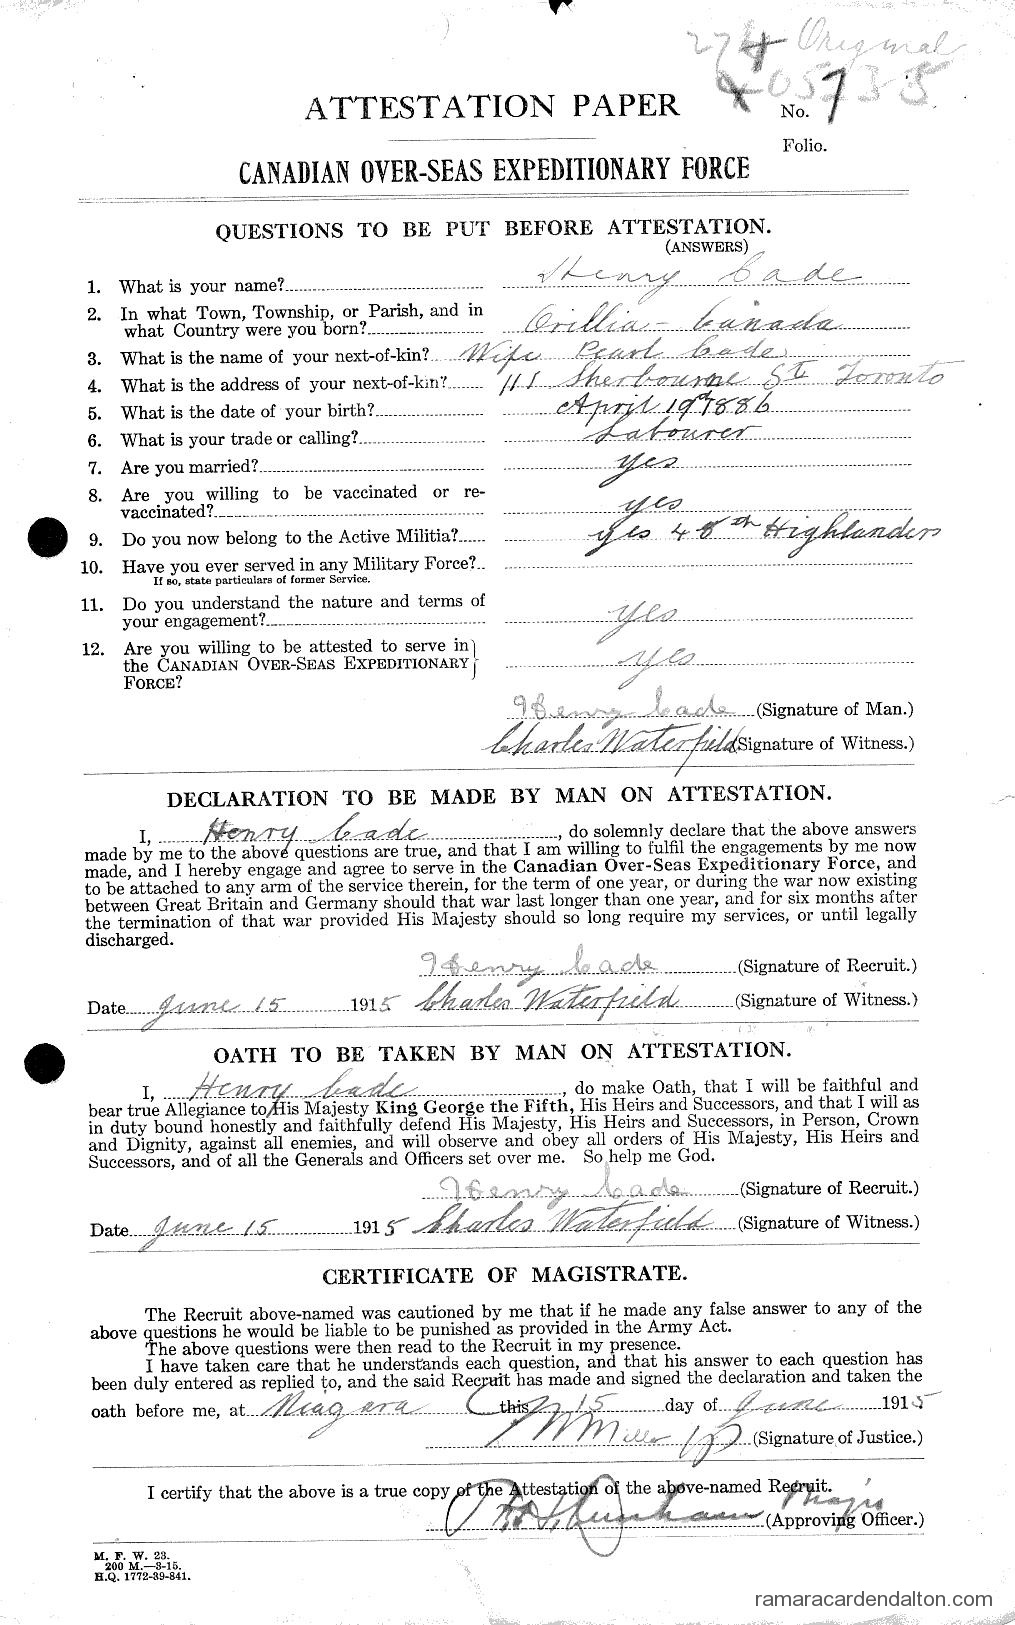 Original
405235
ATTESTATION PAPER
No. 7
Folio.
CANADIAN OVER-SEAS EXPEDITIONARY FORCE
QUESTIONS TO BE PUT BEFORE ATTESTATION.
(ANSWERS)
1. What is your name? Henry Cade
2. In what Town, Township, or Parish, and in
what Country were you born? Orillia - Canada
3. What is the name of your next-of-kin? Wife Pearl Cade
4. What is the address of your next-of-kin? 115 Sherbourne St Toronto
5. What is the date of your birth? April 19th 1886
6. What is your trade or calling? Labourer
7. Are you married? yes
8. Are you willing to be vaccinated or re-
vaccinated? yes
9. Do you now belong to the Active Militia? yes 48th Highlanders
10. Have you ever served in any Military Force?
If so, state particulars of former Service.
11. Do you understand the nature and terms of
your engagement? yes
12. Are you willing to be attested to serve in
the CANADIAN OVER-SEAS EXPEDITIONARY yes
FORCE?
Henry Cade (Signature of Man.)
Charles Waterfield (Signature of Witness.)
DECLARATION TO BE MADE BY MAN ON ATTESTATION.
I, Henry Cade, do solemnly declare that the above answers
made by me to the above questions are true, and that I am willing to fulfil the engagements by me now
made, and I hereby engage and agree to serve in the Canadian Over-Seas Expeditionary Force, and
to be attached to any arm of the service therein, for the term of one year, or during the war now existing
between Great Britain and Germany should that war last longer than one year, and for six months after
the termination of that war provided His Majesty should so long require my services, or until legally
discharged.
Henry Cade (Signature of Recruit.)
Date June 15 1915 Charles Waterfield (Signature of Witness.)
OATH TO BE TAKEN BY MAN ON ATTESTATION.
I, Henry Cade, do make Oath, that I will be faithful and
bear true Allegiance to His Majesty King George the Fifth, His Heirs and Successors, and that I will as
in duty bound honestly and faithfully defend His Majesty, His Heirs and Successors, in Person, Crown
and Dignity, against all enemies, and will observe and obey all orders of His Majesty, His Heirs and
Successors, and of all the Generals and Officers set over me. So help me God.
Henry Cade (Signature of Recruit.)
Date June 15 1915 Charles Waterfield (Signature of Witness.)
CERTIFICATE OF MAGISTRATE.
The Recruit above-named was cautioned by me that if he made any false answer to any of the
above questions he would be liable to be punished as provided in the Army Act.
The above questions were then read to the Recruit in my presence.
I have taken care that he understands each question, and that his answer to each question has
been duly entered as replied to, and the said Recruit has made and signed the declaration and taken the
oath before me, at Niagara this 15 day of June 1915
Miller JP (Signature of Justice.)
I certify that the above is a true copy of the Attestation of the above-named Recruit.
Major
(Approving Officer.)
M. F. W. 23.
200 M.—3-15.
H.Q. 1772-39-841.
ramaracardendalton.com